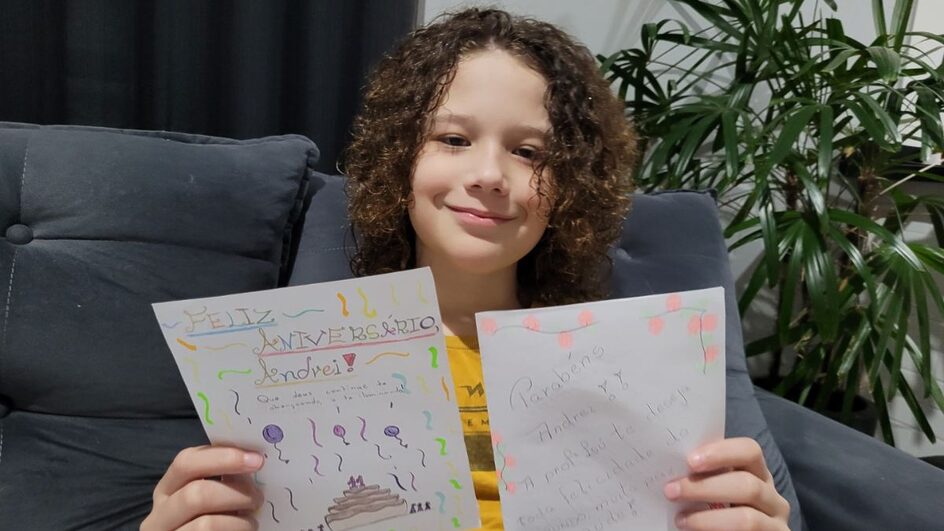 FELIZ
ANIVERSÁRIO
Andrei!
Que deus continue te
abençoando, e te iluminando!
11
Parabéns
Andrei!!
A prof Lú te deseja
toda felicidade do
mundo